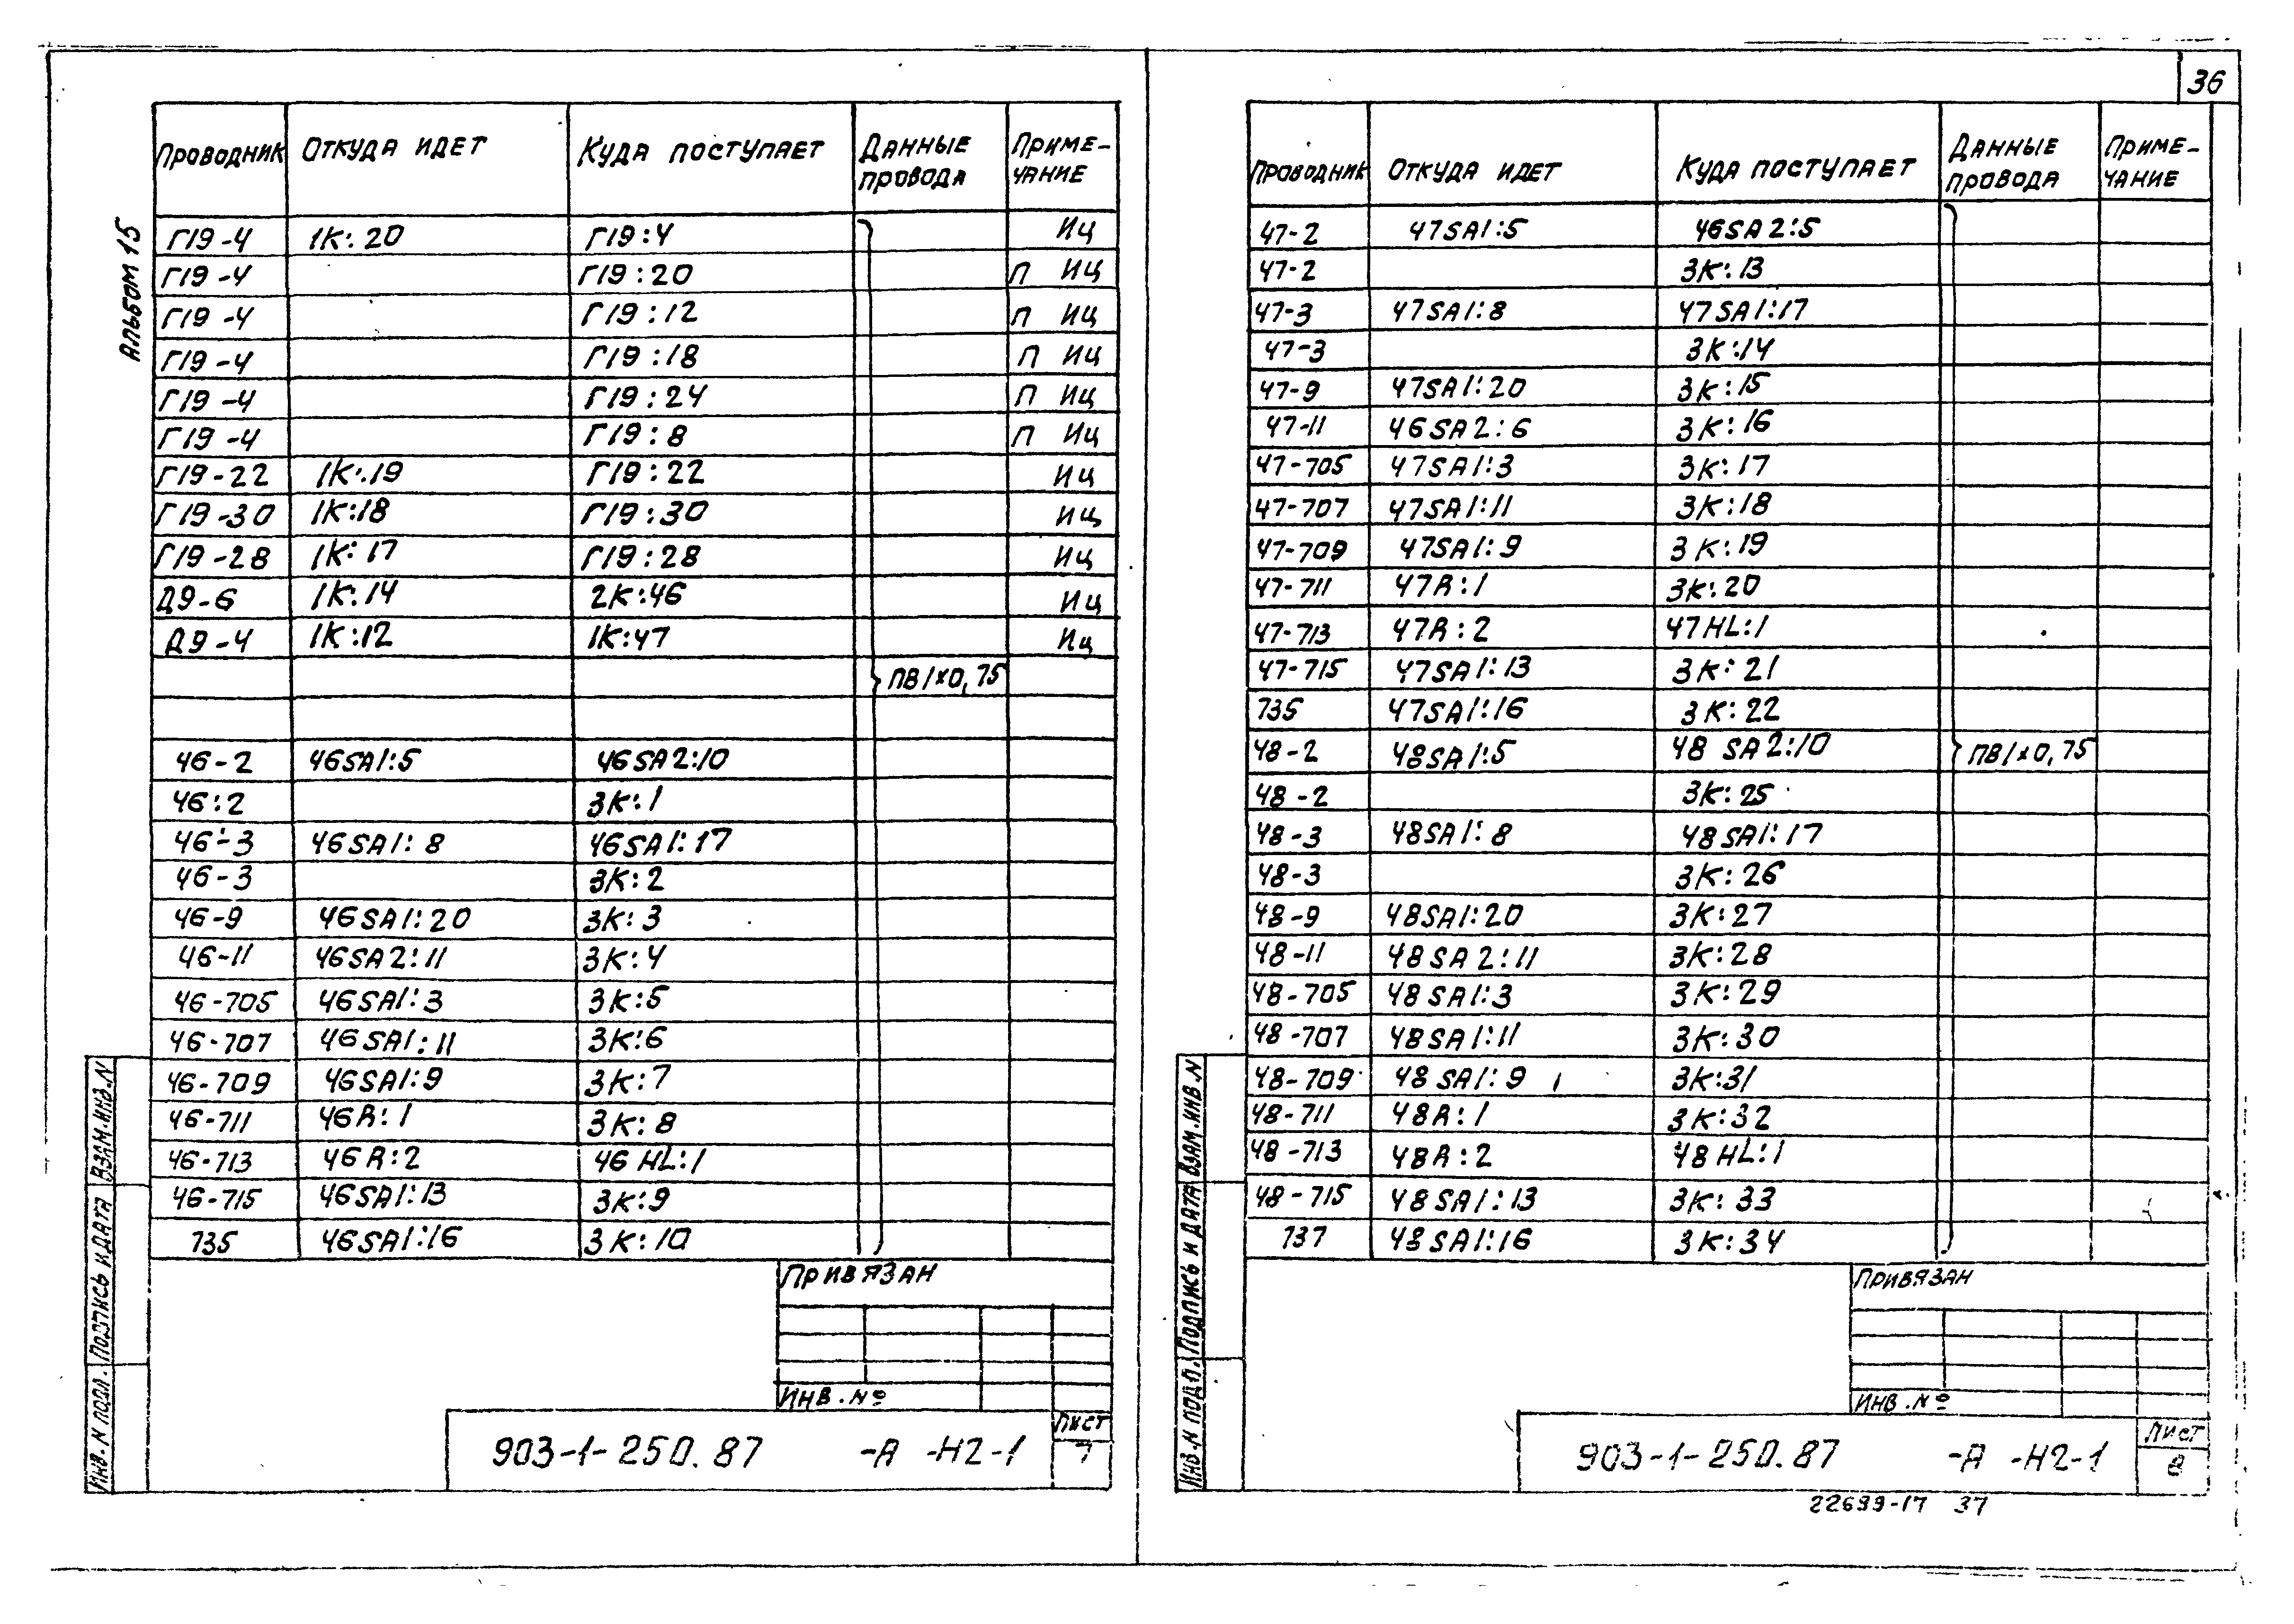 36
Альбом 15
Проводник Откуда идет Куда поступает Данные провода Примечание
Г19-4 1К:20 Г19:4 Иц
Г19-4 Г19:20 П Иц
Г19-4 Г19:12 П Иц
Г19-4 Г19:18 П Иц
Г19-4 Г19:24 П Иц
Г19-4 Г19:8 П Иц
Г19-22 1К:19 Г19:22 Иц
Г19-30 1К:18 Г19:30 Иц
Г19-28 1К:17 Г19:28 Иц
Д9-6 1К:14 2К:46 Иц
Д9-4 1К:12 1К:47 Иц
ПВ1х0,75
46-2 46SA1:5 46SA2:10
46:2 3К:1
46-3 46SA1:8 46SA1:17
46-3 3К:2
46-9 46SA1:20 3К:3
46-11 46SA2:11 3К:4
46-705 46SA1:3 3К:5
46-707 46SA1:11 3К:6
46-709 46SA1:9 3К:7
46-711 46R:1 3К:8
46-713 46R:2 46HL:1
46-715 46SA1:13 3К:9
735 46SA1:16 3К:10
Привязан
Инв.№
903-1-250.87 -А -Н2-1
Лист
7
Инв.N подл. Подпись и дата Взам.инв.N
Проводник Откуда идет Куда поступает Данные провода Примечание
47-2 47SA1:5 46SA2:5
47-2 3К:13
47-3 47SA1:8 47SA1:17
47-3 3К:14
47-9 47SA1:20 3К:15
47-11 46SA2:6 3К:16
47-705 47SA1:3 3К:17
47-707 47SA1:11 3К:18
47-709 47SA1:9 3К:19
47-711 47R:1 3К:20
47-713 47R:2 47HL:1
47-715 47SA1:13 3К:21
735 47SA1:16 3К:22
48-2 48SA1:5 48SA2:10 ПВ1х0,75
48-2 3К:25
48-3 48SA1:8 48SA1:17
48-3 3К:26
48-9 48SA1:20 3К:27
48-11 48SA2:11 3К:28
48-705 48SA1:3 3К:29
48-707 48SA1:11 3К:30
48-709 48SA1:9 3К:31
48-711 48R:1 3К:32
48-713 48R:2 48HL:1
48-715 48SA1:13 3К:33
737 48SA1:16 3К:34
Привязан
Инв.№
903-1-250.87 -А -Н2-1
Лист
8
Инв.N подп. Подпись и дата Взам.инв.N
22699-17 37